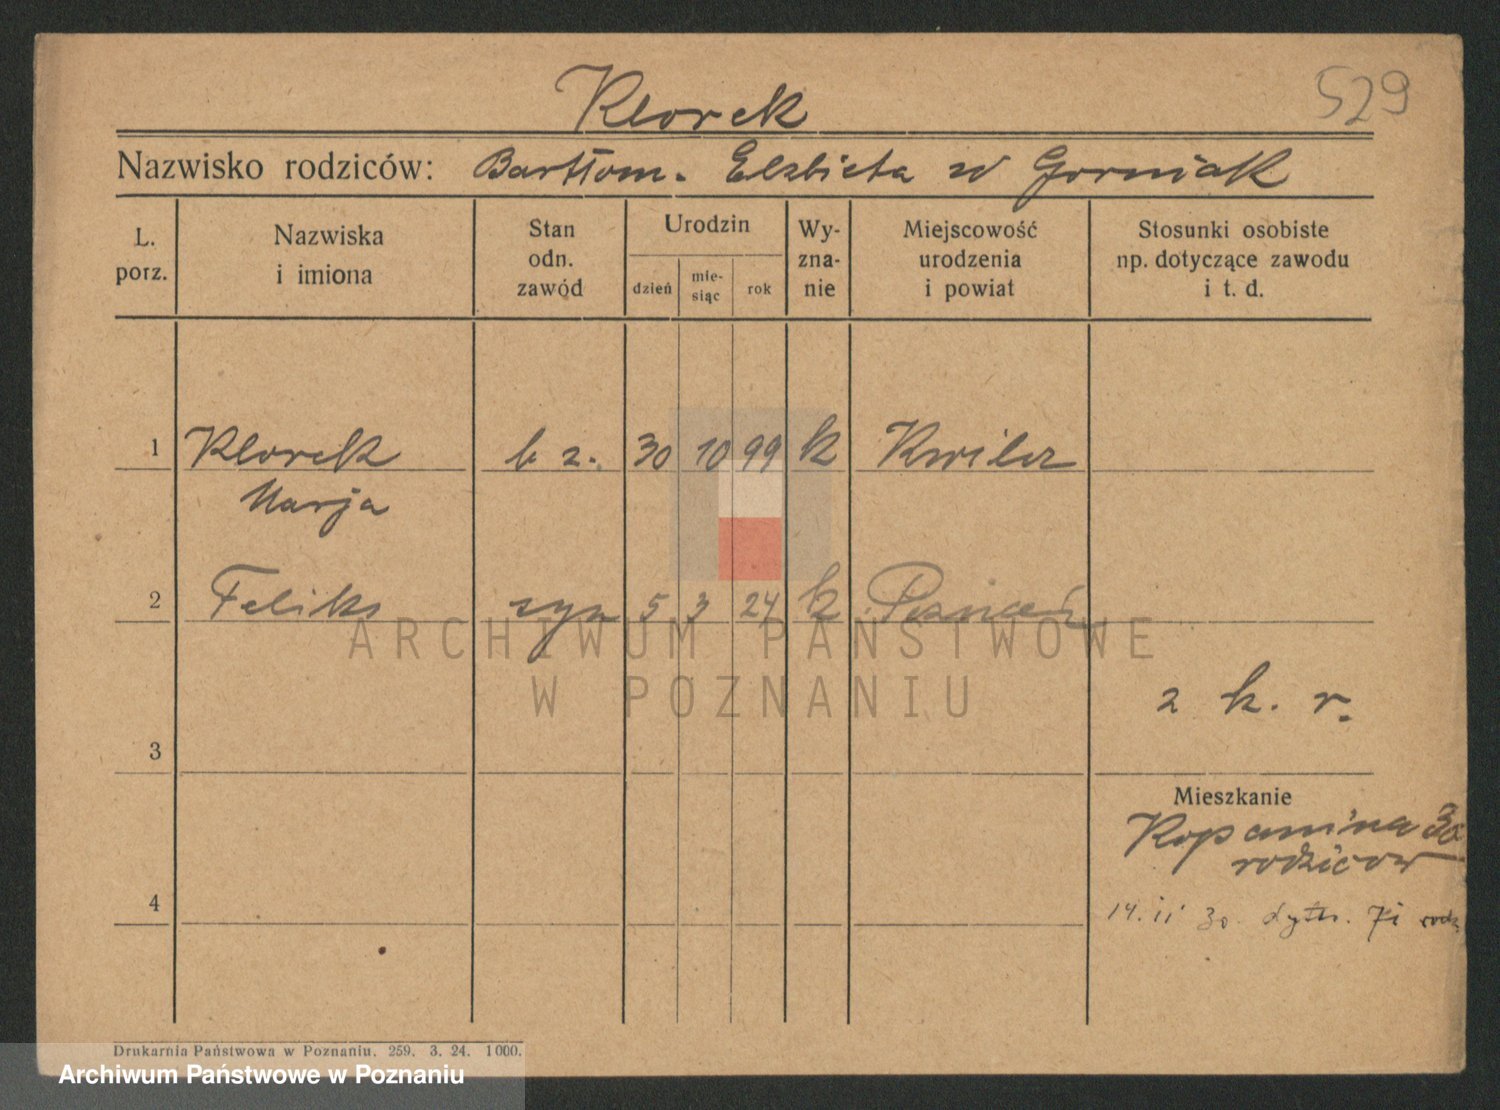 529
Klorek
Nazwisko rodziców: Bartłom. Elzbieta w Gorniak
L. porz.
Nazwiska i imiona
Stan odn. zawód
Urodzin
dzień
mie-siąc
rok
Wy-zna-nie
Miejscowość urodzenia i powiat
Stosunki osobiste np. dotyczące zawodu i t. d.
1 Klorek b z. 30 10 99 k Kwilcz
Marja
2 Feliks syn 5 3 24 k Poznań
ARCHIWUM PAŃSTWOWE
W POZNANIU
2 k. r.
3
Mieszkanie
Kopanina 30
rodziców
4
14. ii 30. 71 rodz.
Drukarnia Państwowa w Poznaniu. 259. 3. 24. 1000.
Archiwum Państwowe w Poznaniu